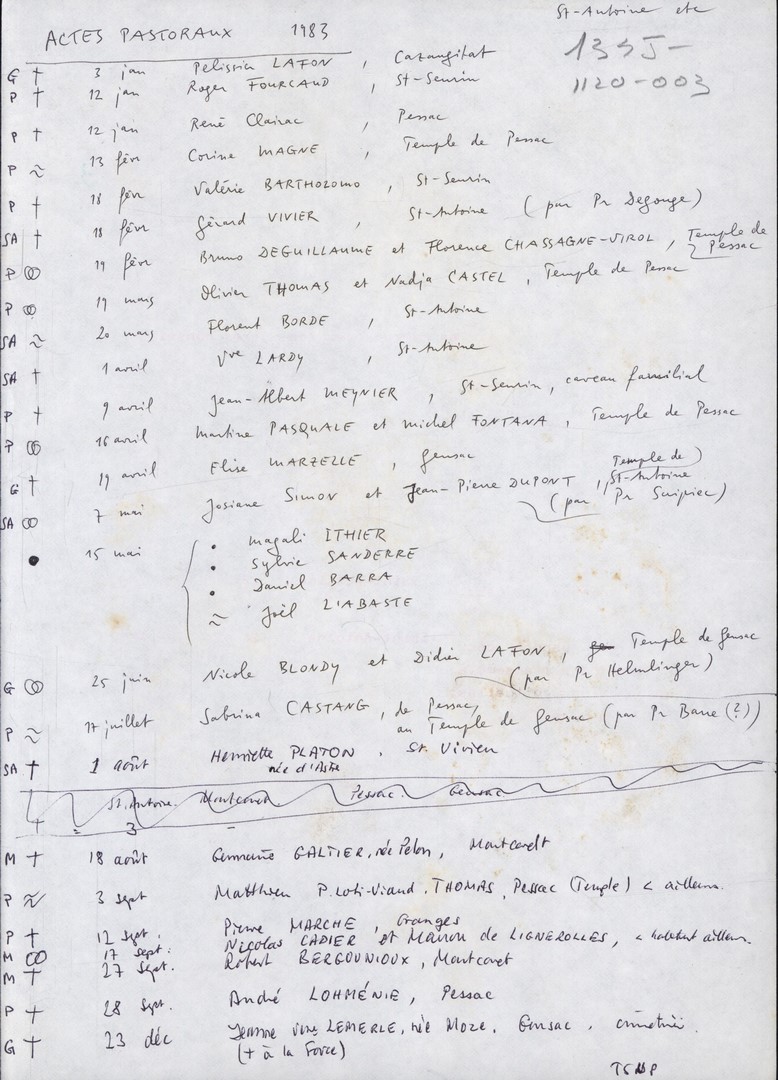 St-Antoine etc
ACTES PASTORAUX 1983
134J-
1120-003
G † 3 jan Pelissier LAFON, Cazaugitat
P † 12 jan Roger FOURCAUD, St-Seurin
P † 12 jan René Clairac, Pessac
P ≈ 13 févr Corine MAGNE, Temple de Pessac
P † 18 févr Valérie BARTHOZOMO, St-Seurin
SA † 18 févr Gérard VIVIER, St-Antoine (par Pr Degouge)
P ⚭ 19 févr Bruno DEGUILLAUME et Florence CHASSAGNE-VIROL, Temple de Pessac
P ⚭ 19 mars Olivier THOMAS et Nadja CASTEL, Temple de Pessac
SA ≈ 20 mars Florent BORDE, St-Antoine
SA † 1 avril Vve LARDY, St-Antoine
P † 9 avril Jean-Albert MEYNIER, St-Seurin, caveau familial
P ⚭ 16 avril Martine PASQUALE et Michel FONTANA, Temple de Pessac
G † 19 avril Elise MARZELLE, Gensac
SA ⚭ 7 mai Josiane SIMON et Jean-Pierre DUPONT, Temple de St-Antoine
(par Pr )
● 15 mai • Magali ITHIER
• Sylvie SANDERRE
• Daniel BARRA
≈ Joël LIABASTE
G ⚭ 25 juin Nicole BLONDY et Didier LAFON, Temple de Gensac
(par Pr Helmlinger)
P ≈ 17 juillet Sabrina CASTANG, de Pessac,
au Temple de Gensac (par Pr Barre (?))
SA † 1 août Henriette PLATON, St Vivien
née d'Astre
St. Antoine. Montcaret Pessac. Gensac
† = 3 -
M † 18 août Germaine GALTIER, née Pelon, Montcaret
P ≈ 3 sept Matthieu P. Loti-Viaud. THOMAS, Pessac (Temple) < ailleurs.
P † 12 sept. Pierre MARCHE, Granges
M ⚭ 17 sept. Nicolas CADIER et Manon de LIGNEROLLES, < habitent ailleurs.
M † 27 sept. Robert BERGOUNIOUX, Montcaret
P † 28 sept. André LOHMÉNIE, Pessac
G † 23 déc Jeanne vve LEMERLE, née Moze, Gensac, cimetière.
(† à la Force)